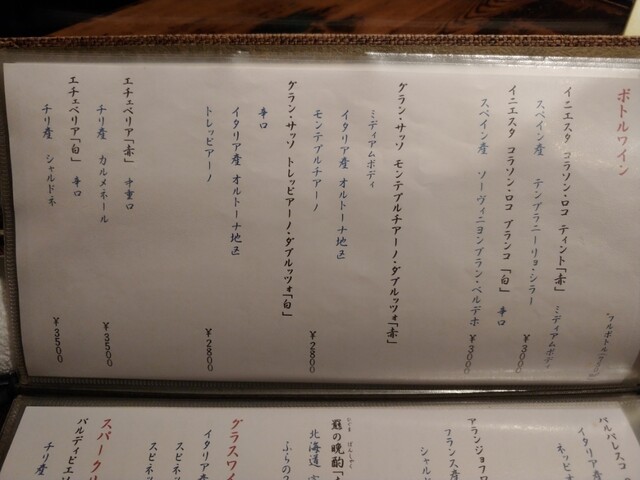 ボトルワイン
イニエスタ コラソン・ロコ ティント「赤」 ミディアムボディ
スペイン産 テンプラニーリョ・シラー
¥3000
イニエスタ コラソン・ロコ ブランコ「白」 辛口
スペイン産 ソーヴィニヨンブラン・ベルデホ
¥3000
グラン・サッソ モンテプルチアーノ・ダブルッツォ「赤」
ミディアムボディ
イタリア産 オルトーナ地区
モンテプルチアーノ
¥2800
グラン・サッソ トレッビアーノ・ダブルッツォ「白」
辛口
イタリア産 オルトーナ地区
トレッビアーノ
¥2800
エチェベリア「赤」 中重口
チリ産 カルメネール
¥3500
エチェベリア「白」 辛口
チリ産 シャルドネ
¥3500
バルバレスコ
イタリア産
ネッビオ
アランジョフワ
フランス産
シャルド
の晩酌
北海道
ふらの
グラスワイ
イタリア産
スピネッ
スピネッ
スパーク
バルディビエ
チリ産